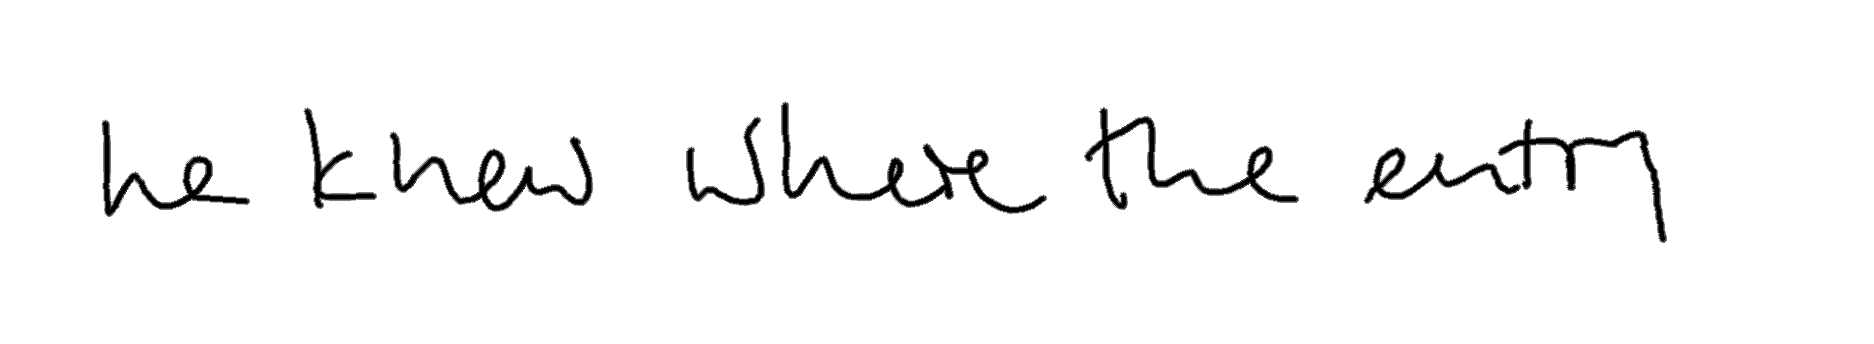 he knew where the entry